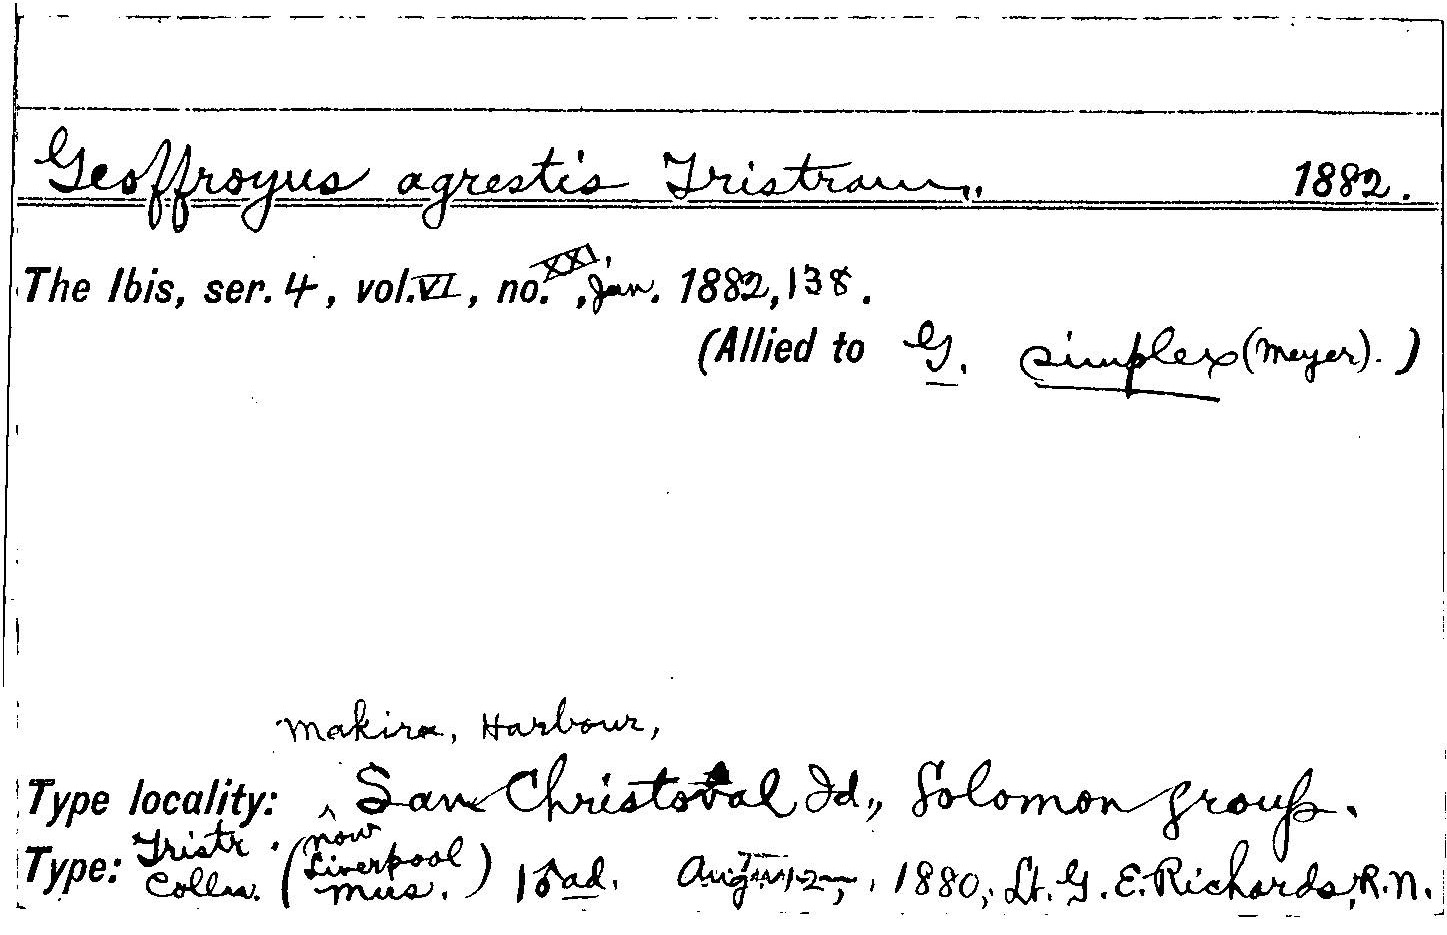 Geoffroyus agrestis Tristram. 1882.
The Ibis, ser. 4, vol. VI, no. XXI, Jan. 1882, 138.
(Allied to G. simplex (Meyer).)
Makira, Harbour,
Type locality: ^ San Christoval Id., Solomon group.
Type: Tristr. Colln. (now Liverpool Mus.) 1 ♂ ad. 1880, Lt. G. E. Richards, R.N.